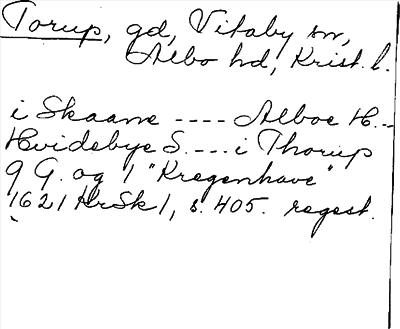 Torup, gd, Vitaby sn,
Albo hd, Krist. l.
i Skaane ---- Alboe H.--
Hvidebye S. ---- i Thorup
9 G. og 1 "Kregenhave"
1621 KrSk 1, s. 405. regest.